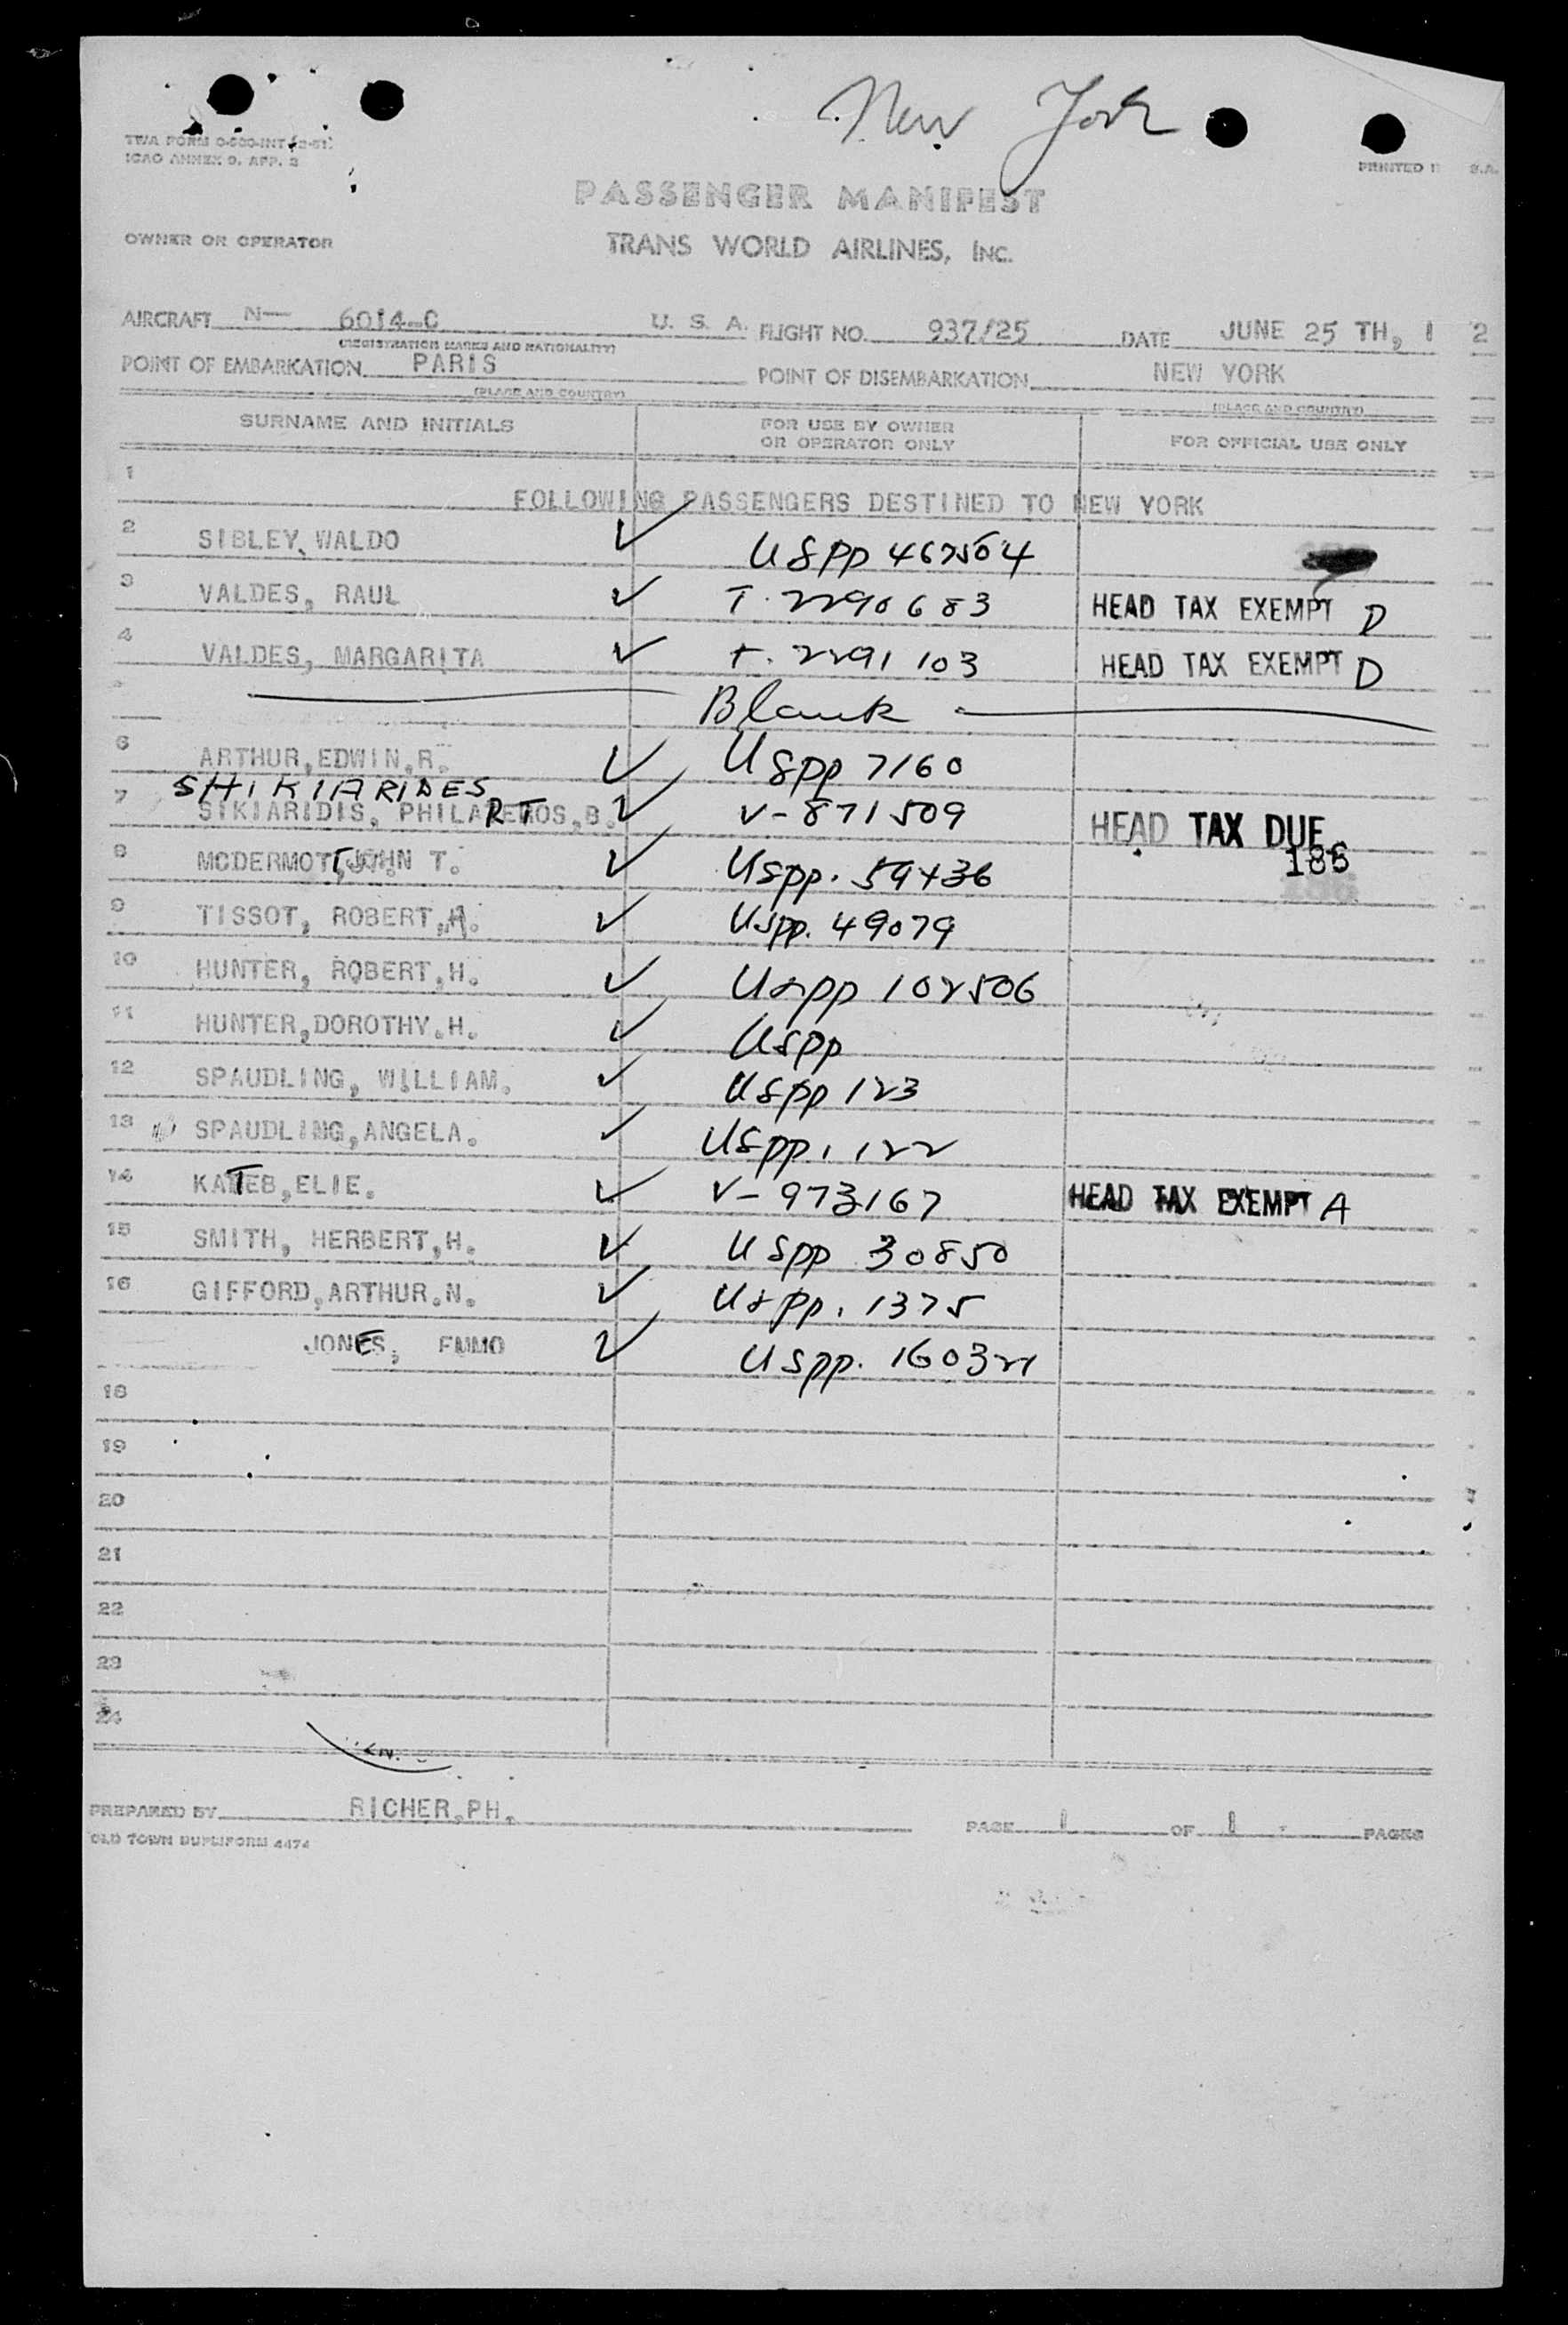 New York
TWA FORM O-500-INT (2-51)
ICAO ANNEX 9, APP. 2
PRINTED I S.A.
PASSENGER MANIFEST
OWNER OR OPERATOR TRANS WORLD AIRLINES, INC.
AIRCRAFT N— 6014-C U. S. A. FLIGHT NO. 937/25 DATE JUNE 25 TH, 1 2
(REGISTRATION MARKS AND NATIONALITY)
POINT OF EMBARKATION PARIS POINT OF DISEMBARKATION NEW YORK
(PLACE AND COUNTRY) (PLACE AND COUNTRY)
SURNAME AND INITIALS FOR USE BY OWNER OR OPERATOR ONLY FOR OFFICIAL USE ONLY
1
FOLLOWING PASSENGERS DESTINED TO NEW YORK
2 SIBLEY, WALDO ✓ USpp 467504
3 VALDES, RAUL ✓ T. 2290683 HEAD TAX EXEMPT D
4 VALDES, MARGARITA ✓ T. 2291103 HEAD TAX EXEMPT D
Blank
6 ARTHUR,EDWIN,R. ✓ USpp 7160
SHIKIARIDES
7 SIKIARIDIS, PHILARETOS,B. ✓ V-871509 HEAD TAX DUE
8 MCDERMOTT,JOHN T. ✓ USpp. 59436 186
9 TISSOT, ROBERT,A. ✓ USpp. 49079
10 HUNTER, ROBERT,H. ✓ USpp 102506
11 HUNTER,DOROTHY.H. ✓ USpp
12 SPAUDLING, WILLIAM. ✓ USpp 123
13 SPAUDLING,ANGELA. ✓ USpp. 122
14 KATEB,ELIE. ✓ V-973167 HEAD TAX EXEMPT A
15 SMITH, HERBERT,H. ✓ USpp 30850
16 GIFFORD,ARTHUR.N. ✓ USpp. 1375
JONES, EMMO ✓ USpp. 160321
18
19
20
21
22
23
24
PREPARED BY RICHER,PH. PAGE 1 OF 1 PAGES
OLD TOWN DUPLIFORM 4474